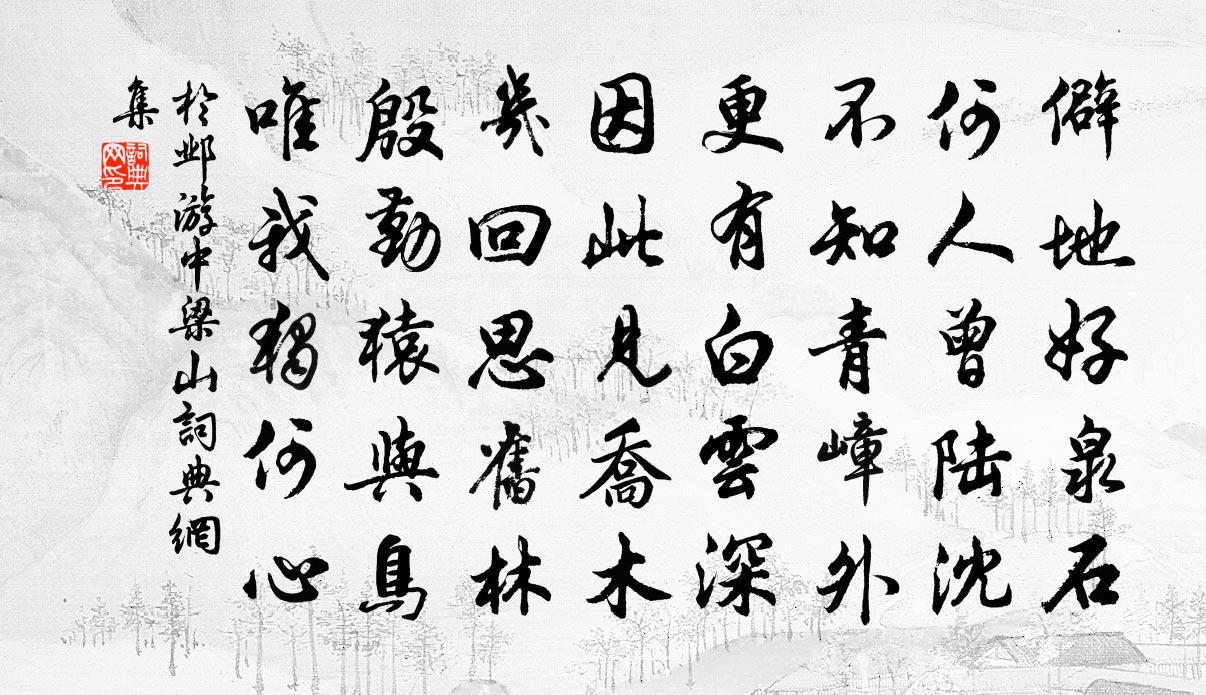 僻地好泉石
何人曾陆沈
不知青嶂外
更有白雲深
因此見喬木
幾回思舊林
殷勤猿與鳥
唯我獨何心
於邺游中梁山詞典網
集
詞典
网印